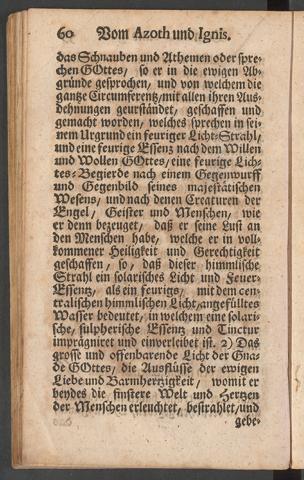 60 Vom Azoth und Ignis.
das Schnauben und Athemen oder spre-
chen GOttes, so er in die ewigen Ab-
gründe gesprochen, und von welchem die
gantze Circumferentz, mit allen ihren Aus-
dehnungen geurständet, geschaffen und
gemacht worden, welches sprechen in sei-
nem Urgrund ein feuriger Licht-Strahl,
und eine feurige Essenz nach dem Willen
und Wollen GOttes, eine feurige Lich-
tes-Begierde nach einem Gegenwurff
und Gegenbild seines majestätischen
Wesens, und nach denen Creaturen der
Engel, Geister und Menschen, wie
er denn bezeuget, daß er seine Lust an
den Menschen habe, welche er in voll-
kommener Heiligkeit und Gerechtigkeit
geschaffen, so, daß dieser himmlische
Strahl ein solarisches Licht und Feuer-
Essentz, als ein feurigs, mit dem cen-
tralischen himmlischen Licht, angefülltes
Wasser bedeutet, in welchem eine solari-
sche, sulpherische Essentz und Tinctur
imprägniret und einverleibet ist. 2) Das
grosse und offenbarende Licht der Gna-
de GOttes, die Ausflüsse der ewigen
Liebe und Barmhertzigkeit, womit er
beydes die finstere Welt und Hertzen
der Menschen erleuchtet, bestrahlet, und
gebe-